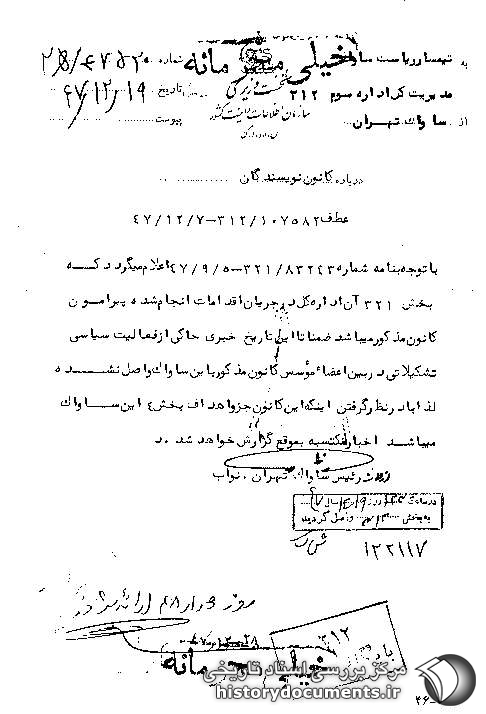 خیلی محرمانه
به تیمسار ریاست ساواک
شماره
مدیریت کل اداره سوم ۳۱۲
نخست وزیری
تاریخ ۴۷/۱۲/۱۹
از ساواک تهران
سازمان اطلاعات و امنیت کشور
پیوست
درباره کانون نویسندگان
عطف ۳۱۲/۱۰۷۵۸۲-۴۷/۱۲/۷
با توجه بنامه شماره ۳۲۱/۸۳۲۴۳-۴۷/۹/۵ اعلام میگردد که
بخش ۳۲۱ آن اداره کل در جریان اقدامات انجام شده پیرامون
کانون مذکور میباشد ضمنا تا این تاریخ خبری حاکی از فعالیت سیاسی
تشکیلاتی در بین اعضاء مؤسس کانون مذکور باین ساواک واصل نشده
لذا با در نظر گرفتن اینکه این کانون جزو اهداف بخش ٤ این ساواک
میباشد اخبار مکتسبه بموقع گزارش خواهد شد. د
رئیس ساواک تهران. نواب
در ساعت روز سال
به بخش ۳۱۲ واصل گردید
۱۲۲۱۱۷
خیلی محرمانه
مرکز بررسی اسناد تاریخی
historydocuments.ir